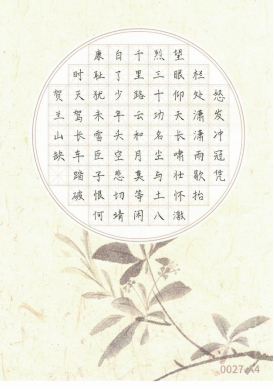 怒发冲冠凭
栏处潇潇雨歇抬
望眼仰天长啸壮怀激
烈三十功名尘与土八
千里路云和月莫等闲
白了少年头空悲切靖
康耻犹未雪臣子恨何
时灭驾长车踏破
贺兰山缺
0027-A4